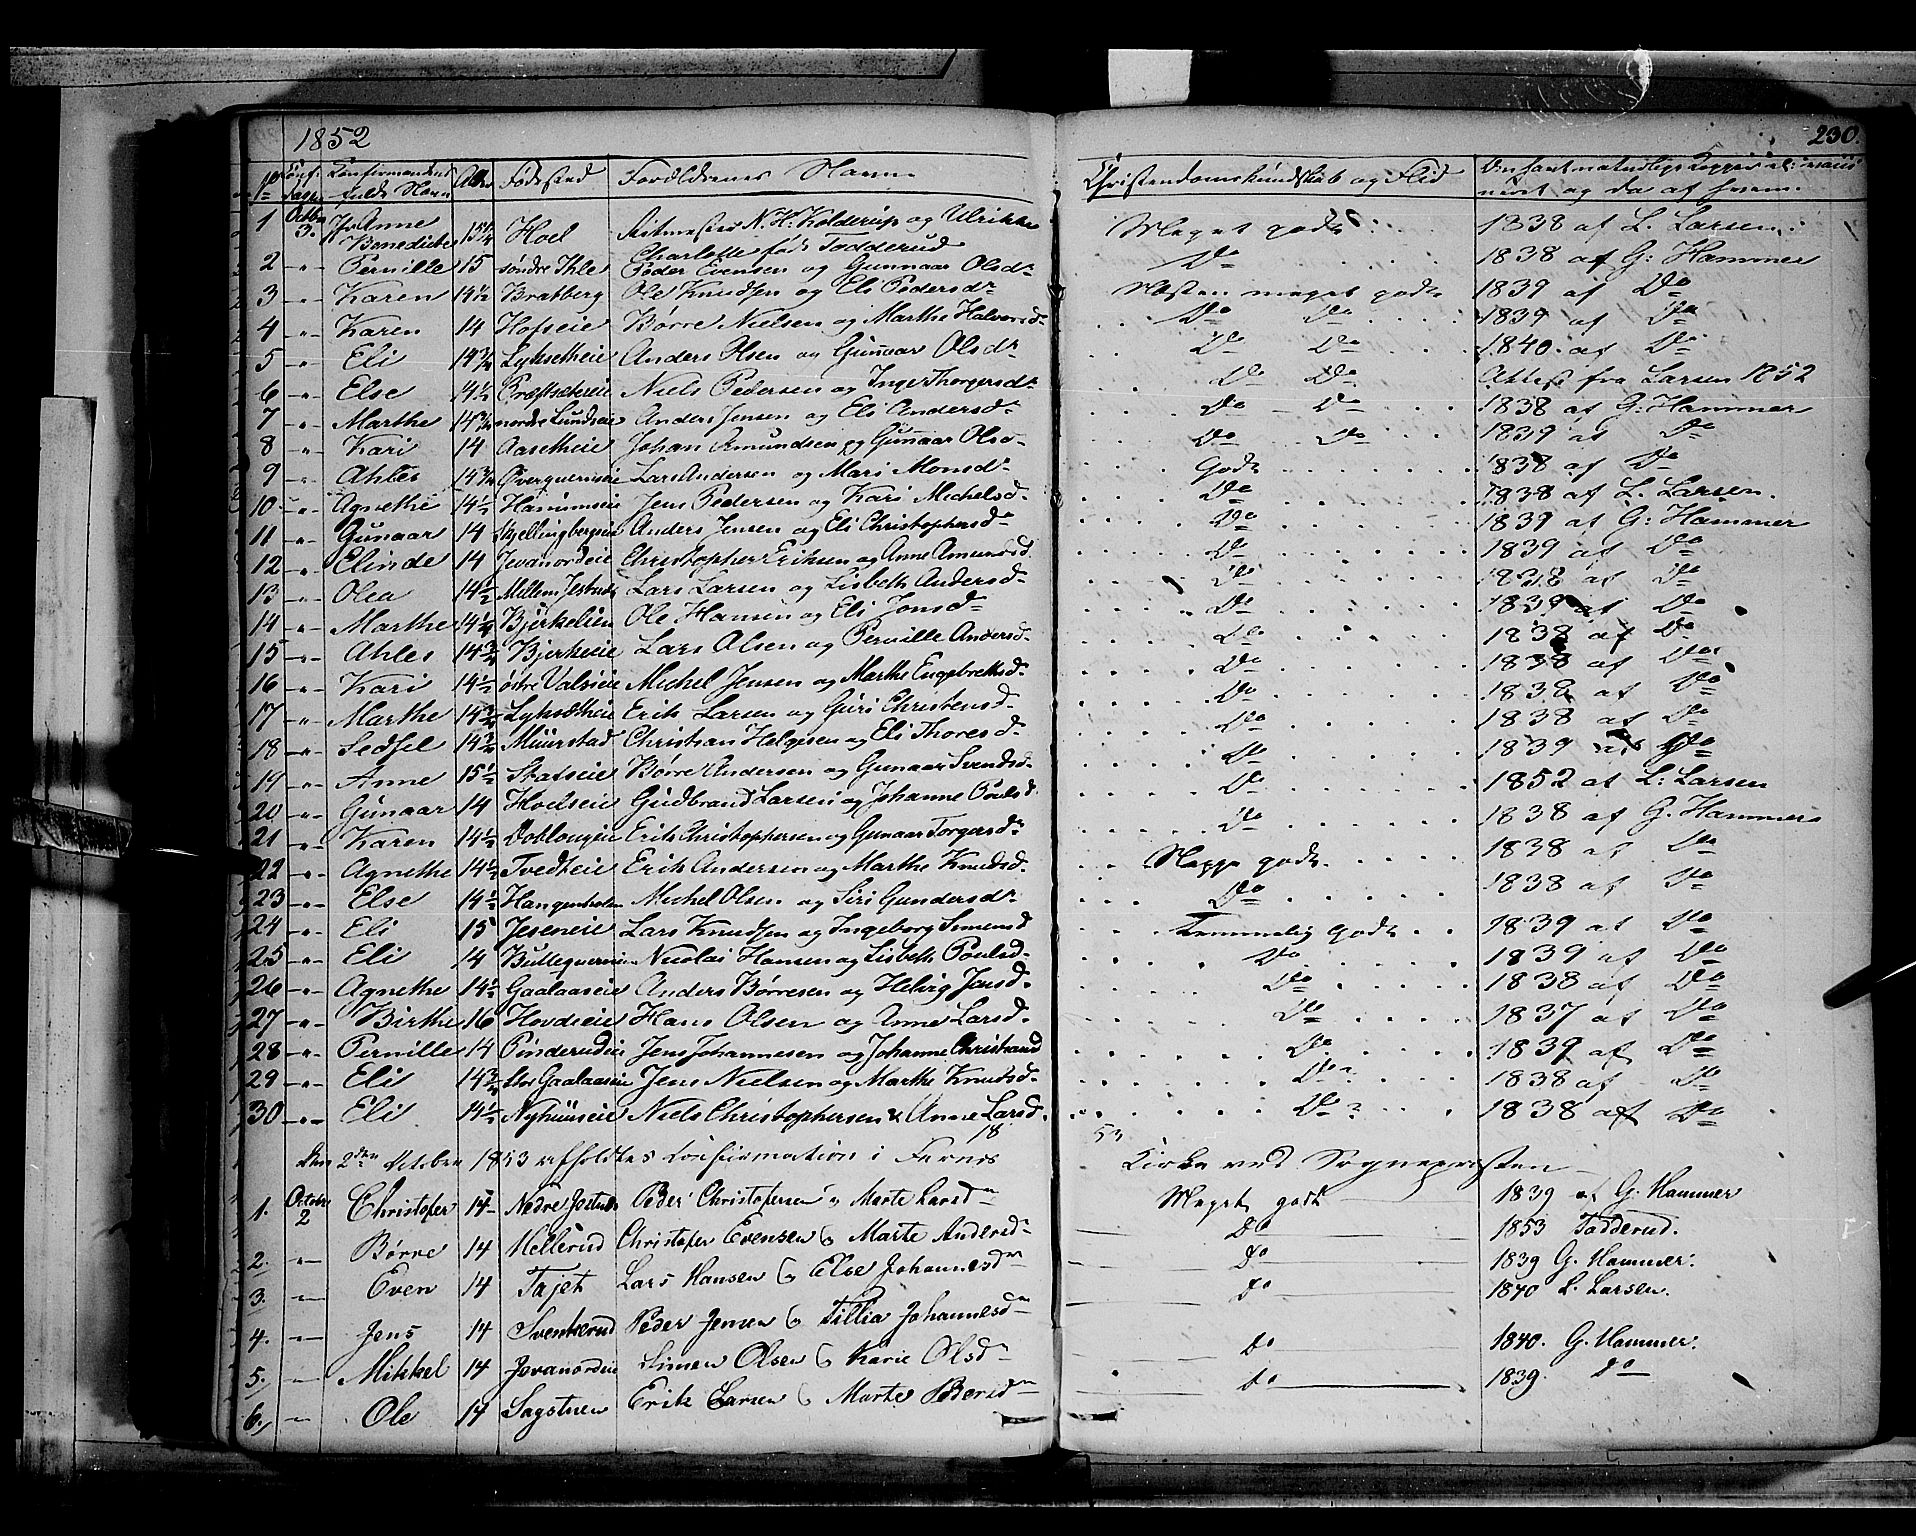 1852
230.
No Conf. Dagen Confirmandens fulde Navn Alder Fødested Forældrenes Navne Christendomskundskab og Flid
1 Octbr 3. Jfr Anne Benedicte 15 1/4 Hoel Ritmester N. H. Kolderup og Ulrikke Charlotte fød Todderud Meget godt 1838 af L. Larsen
2 -"- Pernille 15 søndre Ihle Peder Evensen og Gunnaar Olsdr Do 1838 af G: Hammer
3 -"- Karen 14 1/2 Bratberg Ole Knudsen og Eli Pedersdr Næsten meget godt 1839 af Do
4 " Karen 14 Hofseie Børre Nielsen og Marthe Halvorsdr Do Do 1839 af Do
5 " Eli 14 3/4 Lyksetheie Anders Olsen og Gunaar Olsdr Do Do 1840 af Do
6 -"- Else 14 1/2 Præstsætereie Niels Pedersen og Inge Thorgersdr Do Do Attest fra Larsen 1852
7 -"- Marthe 14 3/4 nordre Lundseie Anders Jensen og Eli Andersdr Do Do 1838 af G: Hammer
8 " Kari 14 Aasetheie Johan Amundsen og Gunaar Olsd Do Do 1839 af Do
9 " Ahles 14 3/4 Øverquerneie Lars Andersen og Mari Monsdr Godt 1838 af Do
10 -"- Agnethe 14 1/2 Hammseie Jens Pedersen og Kari Michelsd. Do 1838 af L. Larsen.
11 -"- Gunaar 14 Skjellingbergseie Anders Jensen og Eli Christophersdr Do 1839 af G: Hammer
12 -"- Elinde 14 Jevanordeie Christopher Eriksen og Anne Amundsd Do 1839 af Do
13 -"- Olea 14 1/2 Mellem Jestnes Lars Larsen og Lisbeth Andersd- Do 1838 af Do
14 -"- Marthe 14 1/2 Bjerkelien Ole Hansen og Eli Jonsd- Do 1839 af Do
15 -"- Ahles 14 3/4 Bjerkeeie Lars Olsen og Pernille Andersd- Do 1838 af Do
16 -"- Kari 14 1/2 østre Valseie Michel Jensen og Marthe Engebretsd- Do 1838 af Do
17 -"- Marthe 14 3/4 Lyksætheie Erik Larsen og Guri Christensd- Do 1838 af Do
18 -"- Sedsel 14 3/4 Muurstad Christian Helgesen og Eli Thoresd- Do 1838 af Do
19 -"- Anne 15 1/2 Statseie Børre Andersen og Gunaar Svendsd- Do 1839 af Do
20 -"- Gunaar 14 Hoelseie Gudbrand Larsen og Johanne Poulsd. Do 1852 af L: Larsen
21 -"- Karen 14 1/2 Doblougeie Erik Christophersen og Gunaar Torgersdr Do 1838 af G. Hammer
22 -"- Agnethe 14 1/2 Tvedteie Erik Andersen og Marthe Knudsd- Neppe godt 1838 af Do
23 -"- Else 14 1/2 Hangenholen Michel Olsen og Siri Gundersdr Do 1838 af Do
24 -"- Eli 15 Jeseneie Lars Knudsen og Ingeborg Simensd Temmelig godt 1839 af Do
25 -"- Eli 14 Buttequerneie Nicolai Hansen og Lisbeth Poulsd- Do 1839 af Do
26 -"- Agnethe 14 1/2 Gaalaaseie Anders Børresen og Helvig Jonsd- Do 1838 af Do
27 -"- Birthe 16 Hovdseie Hans Olsen og Anne Larsd- Do 1837 af Do
28 -"- Pernille 14 Pinderudeie Jens Johannesen og Johanne Christiansd Do 1839 af Do
29 -"- Eli 14 3/4 Store Gaalaaseie Jens Nielsen og Marthe Knudsd- Do? 1838 af Do
30 -"- Eli 14 1/2 Nyhuuseie Niels Christophersen & Anne Larsd. Do? 1838 af Do
18 53
Den 2den October 1853 afholdtes Confirmation i Furnes Kirke ved Sognepresten
1. October 2 Christofer 14 Nedre Jestnes Peder Christofersen og Marte Larsdr Meget godt 1839 af G. Hammer
2. -"- Børre 14 Hellerud Christofer Evensen og Marte Andersdr Do 1853 Todderud.
3. -"- Even 14 Tajet Lars Hansen og Else Johannesdr Do 1839 G. Hammer.
4. -"- Jens 14 Svenkerud Peder Jensen og Tillia Johannesdr Do 1840 L. Larsen.
5. -"- Mikkel 14 Jevanordeie Simen Olsen og Karie Olsdr Do 1840. G. Hammer.
6. -"- Ole 14 Sagstuen Erik Larsen og Marte Pedersdr Do 1839. Do